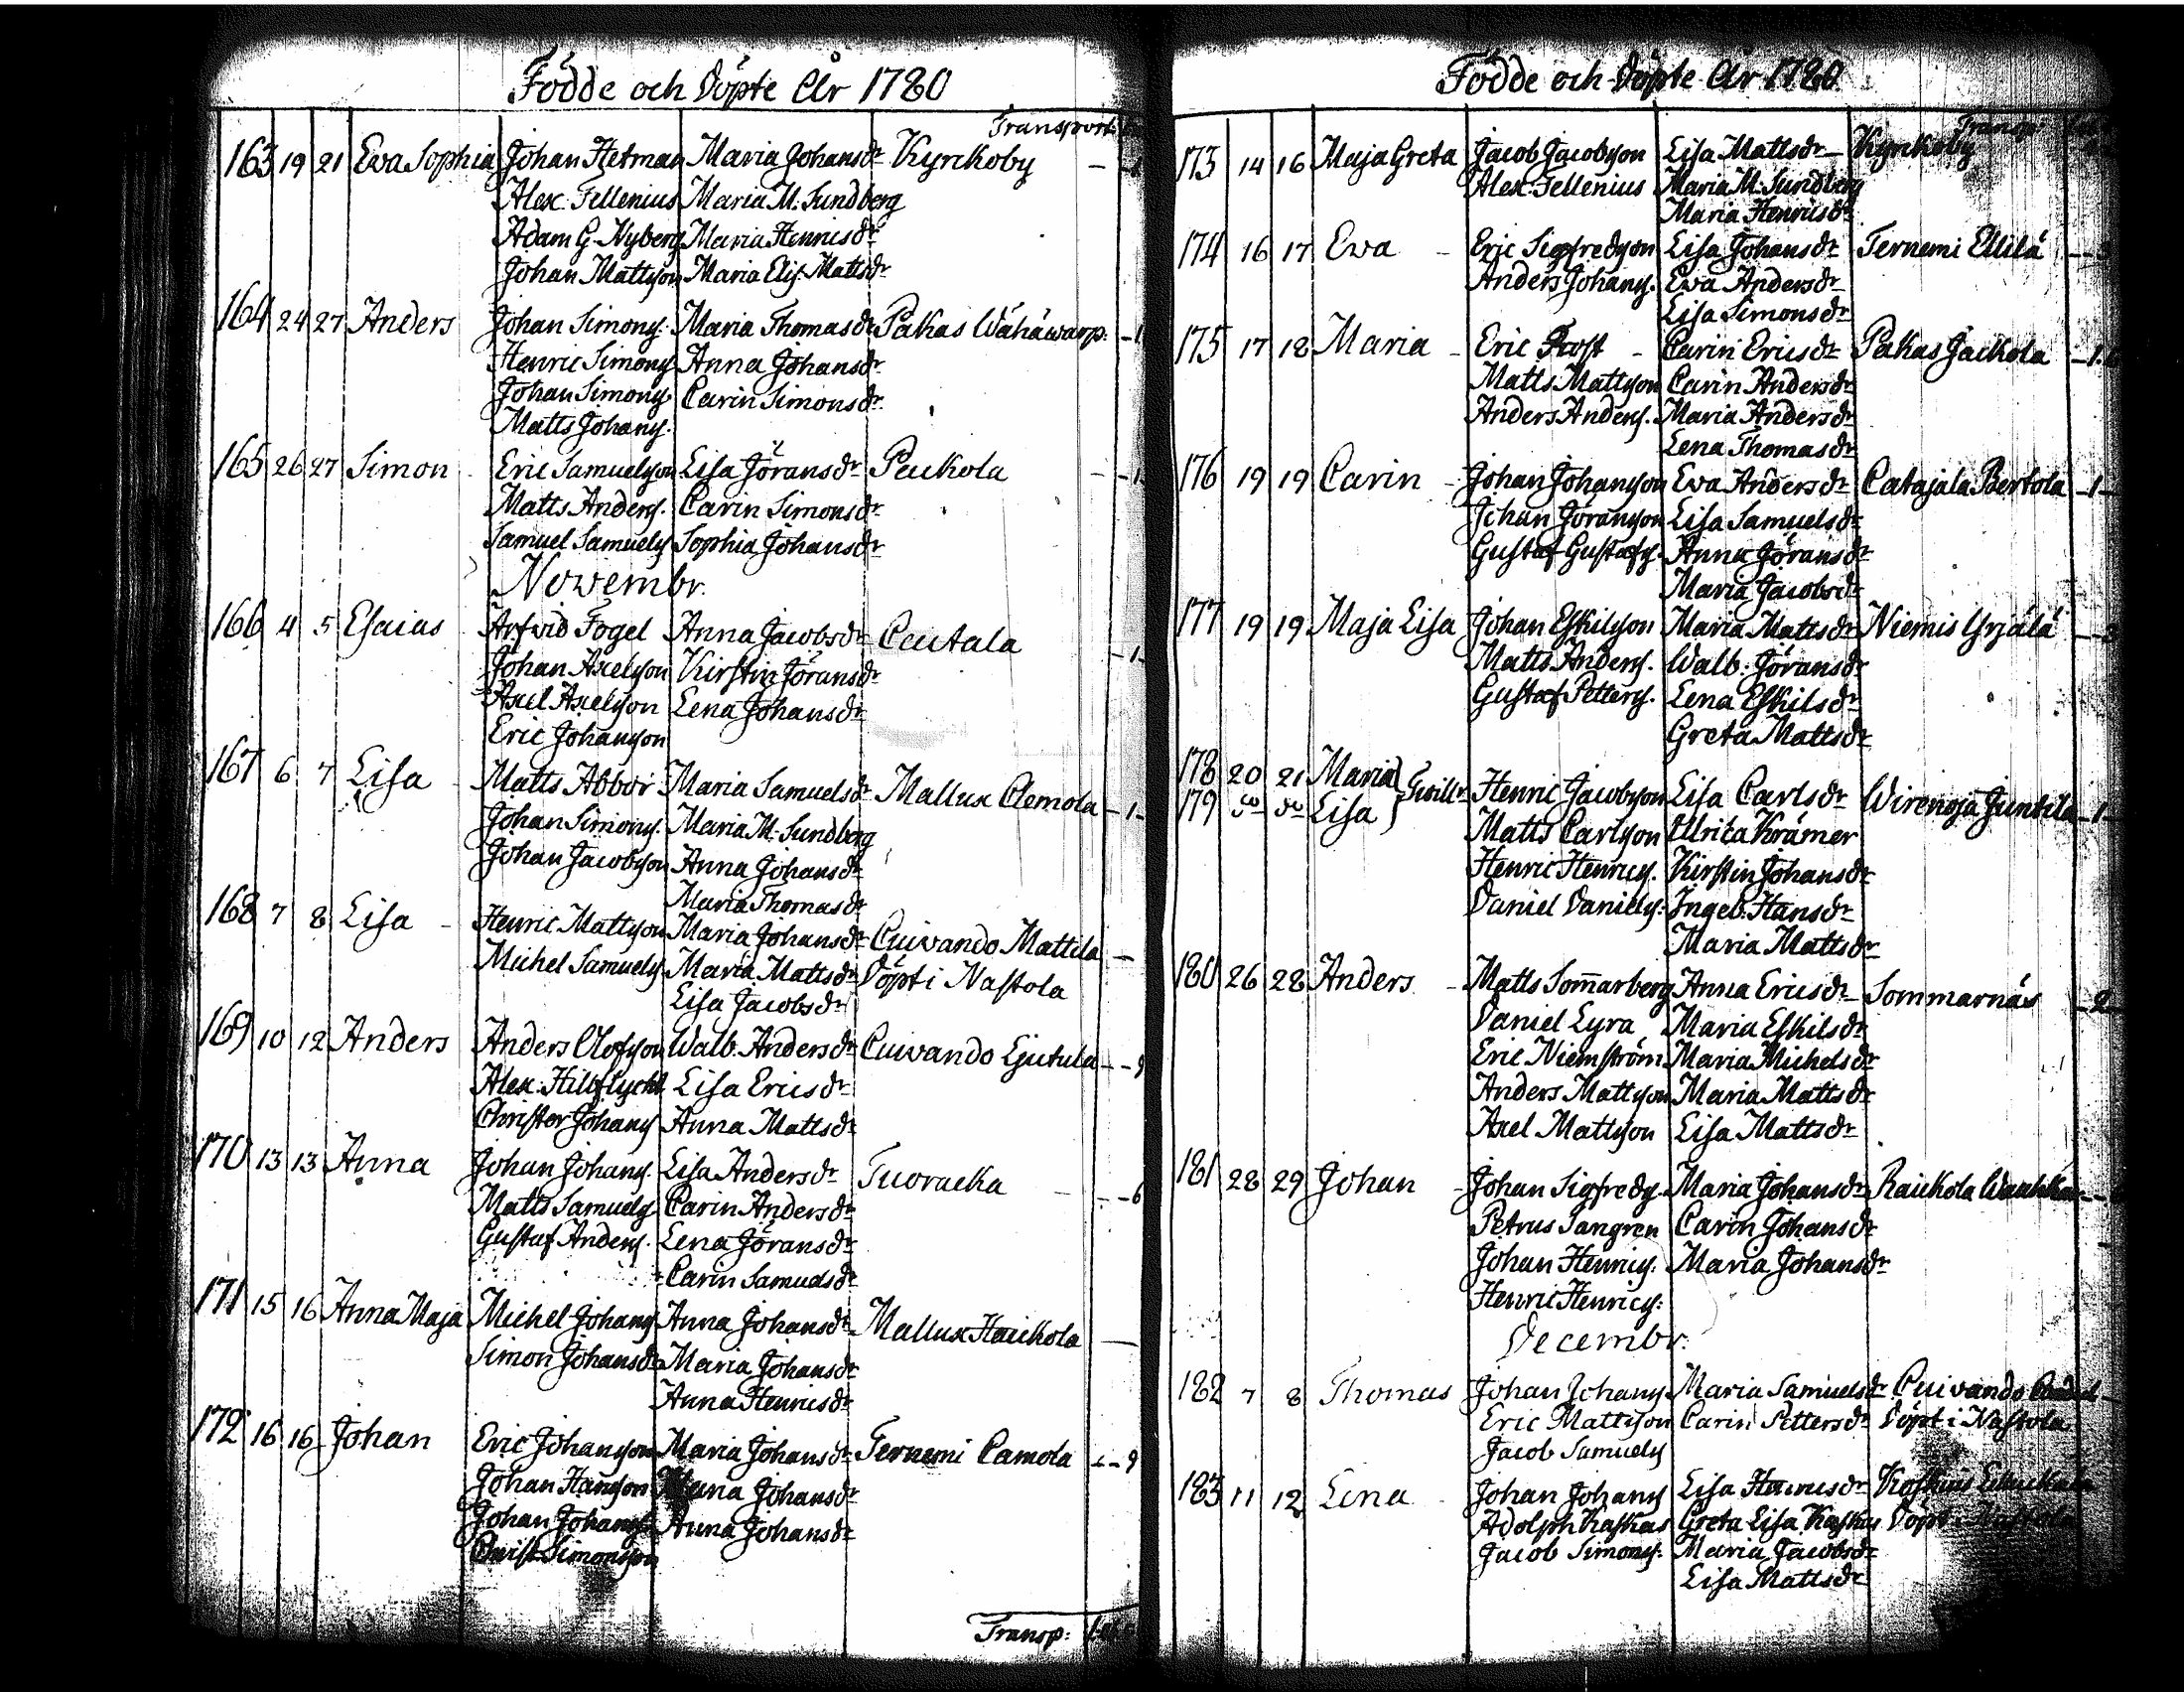 Födde och Döpte År 1780
Transport:
163 19 21 Ewa Sophia Johan Hetman Maria Johansdr Kyrckoby
Alex: Fellenius Maria M: Sundberg
Adam G. Nyberg Maria Henricsdr
Johan Mattsson Maria Elis. Mattsdr
164 24 27 Anders Johan Simons. Maria Thomasdr Pakas Wähäwarp:
Henric Simons Anna Johansdr
Johan Simons Carin Simonsdr
Matts Johans.
165 26 27 Simon Eric Samuelsson Lisa Jöransdr Peukola
Matts Anders. Carin Simonsdr
Samuel Samuels Sophia Johansdr
Novembr.
166 4 5 Esaias Arfvid Fogel Anna Jacobsdr Cautala
Johan Axelsson Kirstin Jöransdr
Axel Axelsson Lena Johansdr
Eric Johansson
167 6 7 Lisa Matts Abbor Maria Samuelsdr Mallux Clemola
Johan Simons. Maria M: Sundberg
Johan Jacobsson Anna Johansdr
Maria Thomasdr
168 7 8 Lisa Henric Mattsson Maria Johansdr Cuivando Mattila
Michel Samuels Maria Mattsdr Döpt i Nastola
Lisa Jacobsdr
169 10 12 Anders Anders Olofsson Walb. Andersdr Cuivando Ejutula
Alex: Hilflycht Lisa Ericsdr
Christer Johans Anna Mattsdr
170 13 13 Anna Johan Johans. Lisa Andersdr Tuoracka 6
Matts Samuels Carin Andersdr
Gustaf Anders. Lena Jöransdr
Carin Samuelsdr
171 15 16 Anna Maja Michel Johans Anna Johansdr Mallux Hauckola
Simon Johansdr Maria Johansdr
Anna Henricsdr
172 16 16 Johan Eric Johansson Maria Johansdr Ternemi Camola 9
Johan Hansson Johansdr
Johan Johans Anna Johansdr
Christ: Simonsson
Transp:
Födde och Döpte År 1780
Transp:
173 14 16 Maja Greta Jacob Jacobsson Lisa Mattsdr Kyrckoby
Alex: Fellenius Maria M: Sundberg
Maria Henricsdr
174 16 17 Ewa Eric Sigfredsson Lisa Johansdr Ternemi Ellilä
Anders Johans. Ewa Andersdr
Lisa Simonsdr
175 17 18 Maria Eric Frost Carin Ericsdr Pakas Jackola
Matts Mattsson Carin Andersdr
Anders Anders. Maria Andersdr
Lena Thomasdr
176 19 19 Carin Johan Johansson Ewa Andersdr Catajala Bertola 1
Johan Jöransson Lisa Samuelsdr
Gustaf Gustafs. Anna Jöransdr
Maria Jacobsdr
177 19 19 Maja Lisa Johan Eskilsson Maria Mattsdr Niemis Yrjälä
Matts Anders. Walb: Jöransdr
Gustaf Petters. Lena Eskilsdr
Greta Mattsdr
178 20 21 Maria } Twill: Henric Jacobsson Lisa Carlsdr Wirenoja Juntila 1
179 do do Lisa }
Matts Carlsson Ulrica Krämer
Henric Henrics. Kirstin Johansdr
Daniel Daniels: Ingeb. Hansdr
Maria Mattsdr
180 26 28 Anders Matts Som̄arberg Anna Ericsdr Sommarnäs 2
Daniel Lyra Maria Eskilsdr
Eric Niemström Maria Michelsdr
Anders Mattsson Maria Mattsdr
Axel Mattsson Lisa Mattsdr
181 28 29 Johan Johan Sigfreds. Maria Johansdr Raickola
Petrus Tangren Carin Johansdr
Johan Henrics. Maria Johansdr
Henric Henrics:
Decembr.
182 7 8 Thomas Johan Johans Maria Samuelsdr Cuivando
Eric Mattsson Carin Pettersdr Döpt i Nastola
Jacob Samuels
183 11 12 Lena Johan Johans Lisa Henricsdr
Adolph Kaskas Greta Lisa Kaskas Döpt i Nastola
Jacob Simons: Maria Jacobsdr
Lisa Mattsdr